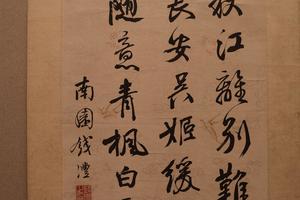 秋江離別難
長安吴姬緩
随意青楓白
南園錢灃